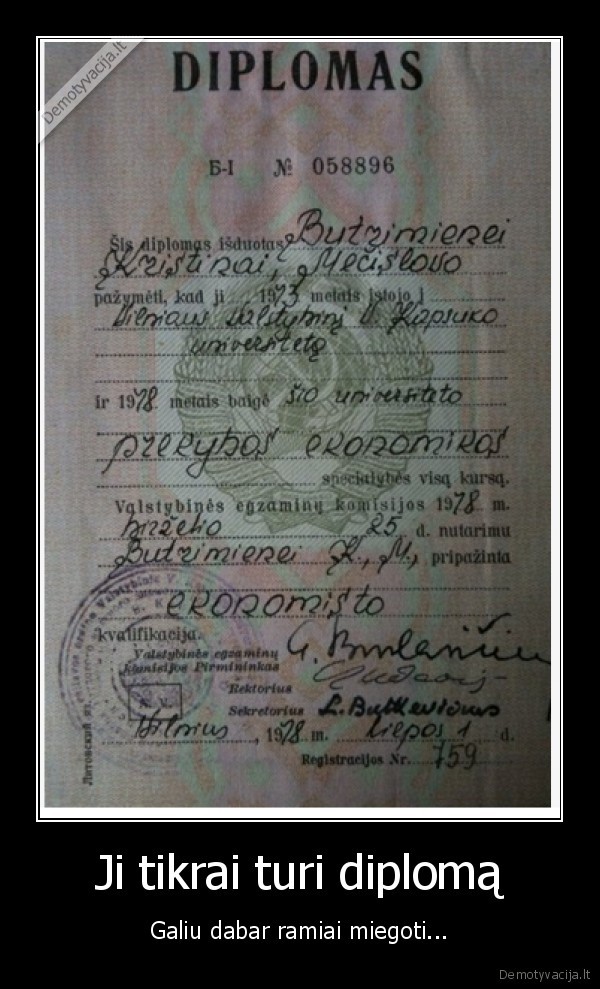 Demotyvacija.lt
DIPLOMAS
Б-I № 058896
Šis diplomas išduotas Butrimienei
Kristinai, Mečislovo
pažymėti, kad ji 1973 metais įstojo į
Vilniaus valstybinį V. Kapsuko
universitetą
ir 1978 metais baigė šio universiteto
prekybos ekonomikos
specialybės visą kursą.
Valstybinės egzaminų komisijos 1978 m.
birželio 25 d. nutarimu
Butrimienei K., M., pripažinta
ekonomisto
kvalifikacija.
Valstybinės egzaminų
komisijos Pirmininkas
Rektorius
Sekretorius L. Butkevičius
Vilnius, 1978 m. liepos 1 d.
Registracijos Nr. 759
Ji tikrai turi diplomą
Galiu dabar ramiai miegoti...
Demotyvacija.lt